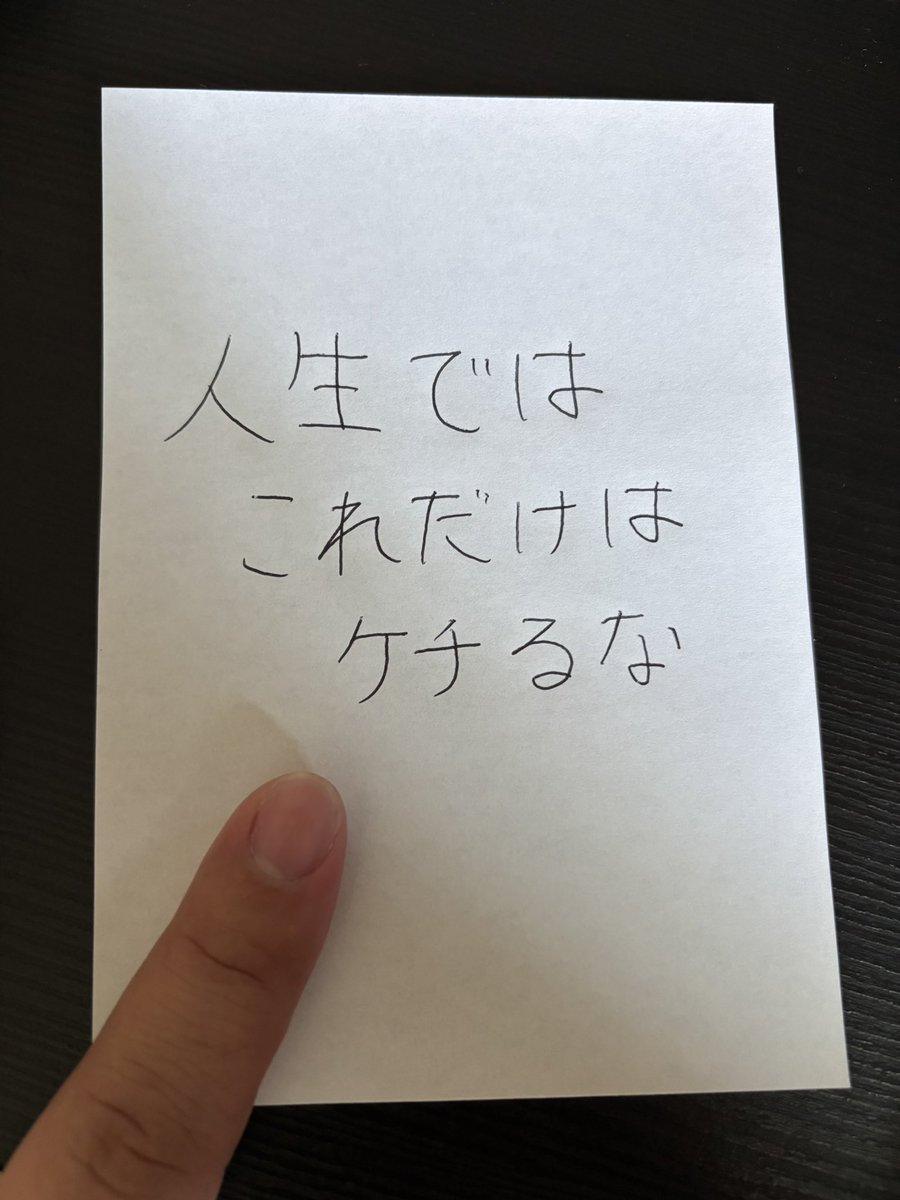 人生では
これだけは
ケチるな